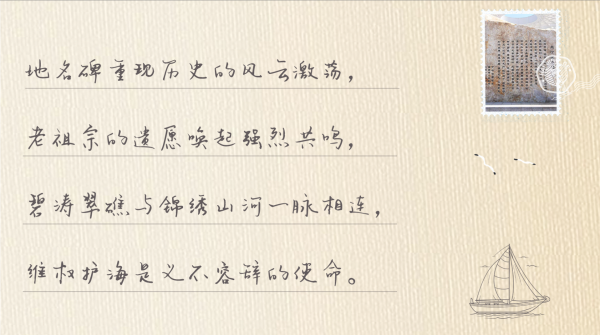 地名碑重现历史的风云激荡，
老祖宗的遗愿唤起强烈共鸣，
碧涛翠礁与锦绣山河一脉相连，
维权护海是义不容辞的使命。